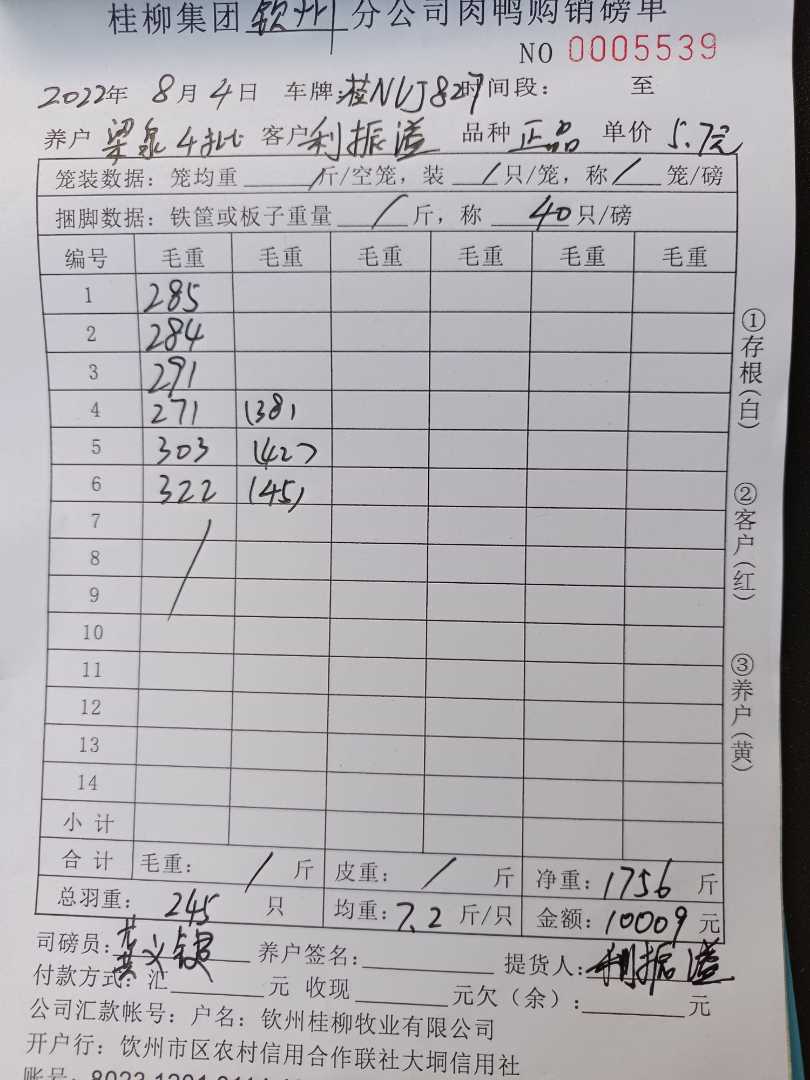 桂柳集团 钦州 分公司肉鸭购销磅单
NO 0005539
2022年 8月4日 车牌:桂NUJ827时间段: 至
养户 梁泉4批 客户利振溢 品种 正品 单价 5.7元
笼装数据: 笼均重 / 斤/空笼, 装 / 只/笼, 称 / 笼/磅
捆脚数据: 铁筐或板子重量 / 斤, 称 40只/磅
编号 毛重 毛重 毛重 毛重 毛重 毛重
1 285
2 284
3 291
4 271 (38)
5 303 (42)
6 322 (45)
7
8
9
10
11
12
13
14
小 计
合 计 毛重: / 斤 皮重: / 斤 净重:1756 斤
总羽重: 245 只 均重:7.2 斤/只 金额:10009元
司磅员: 养户签名: 提货人:利振溢
付款方式: 汇 元 收现 元欠(余): 元
公司汇款帐号: 户名: 钦州桂柳牧业有限公司
开户行: 饮州市区农村信用合作联社大垌信用社
账号: 8023 1201
①存根(白)
②客户(红)
③养户(黄)